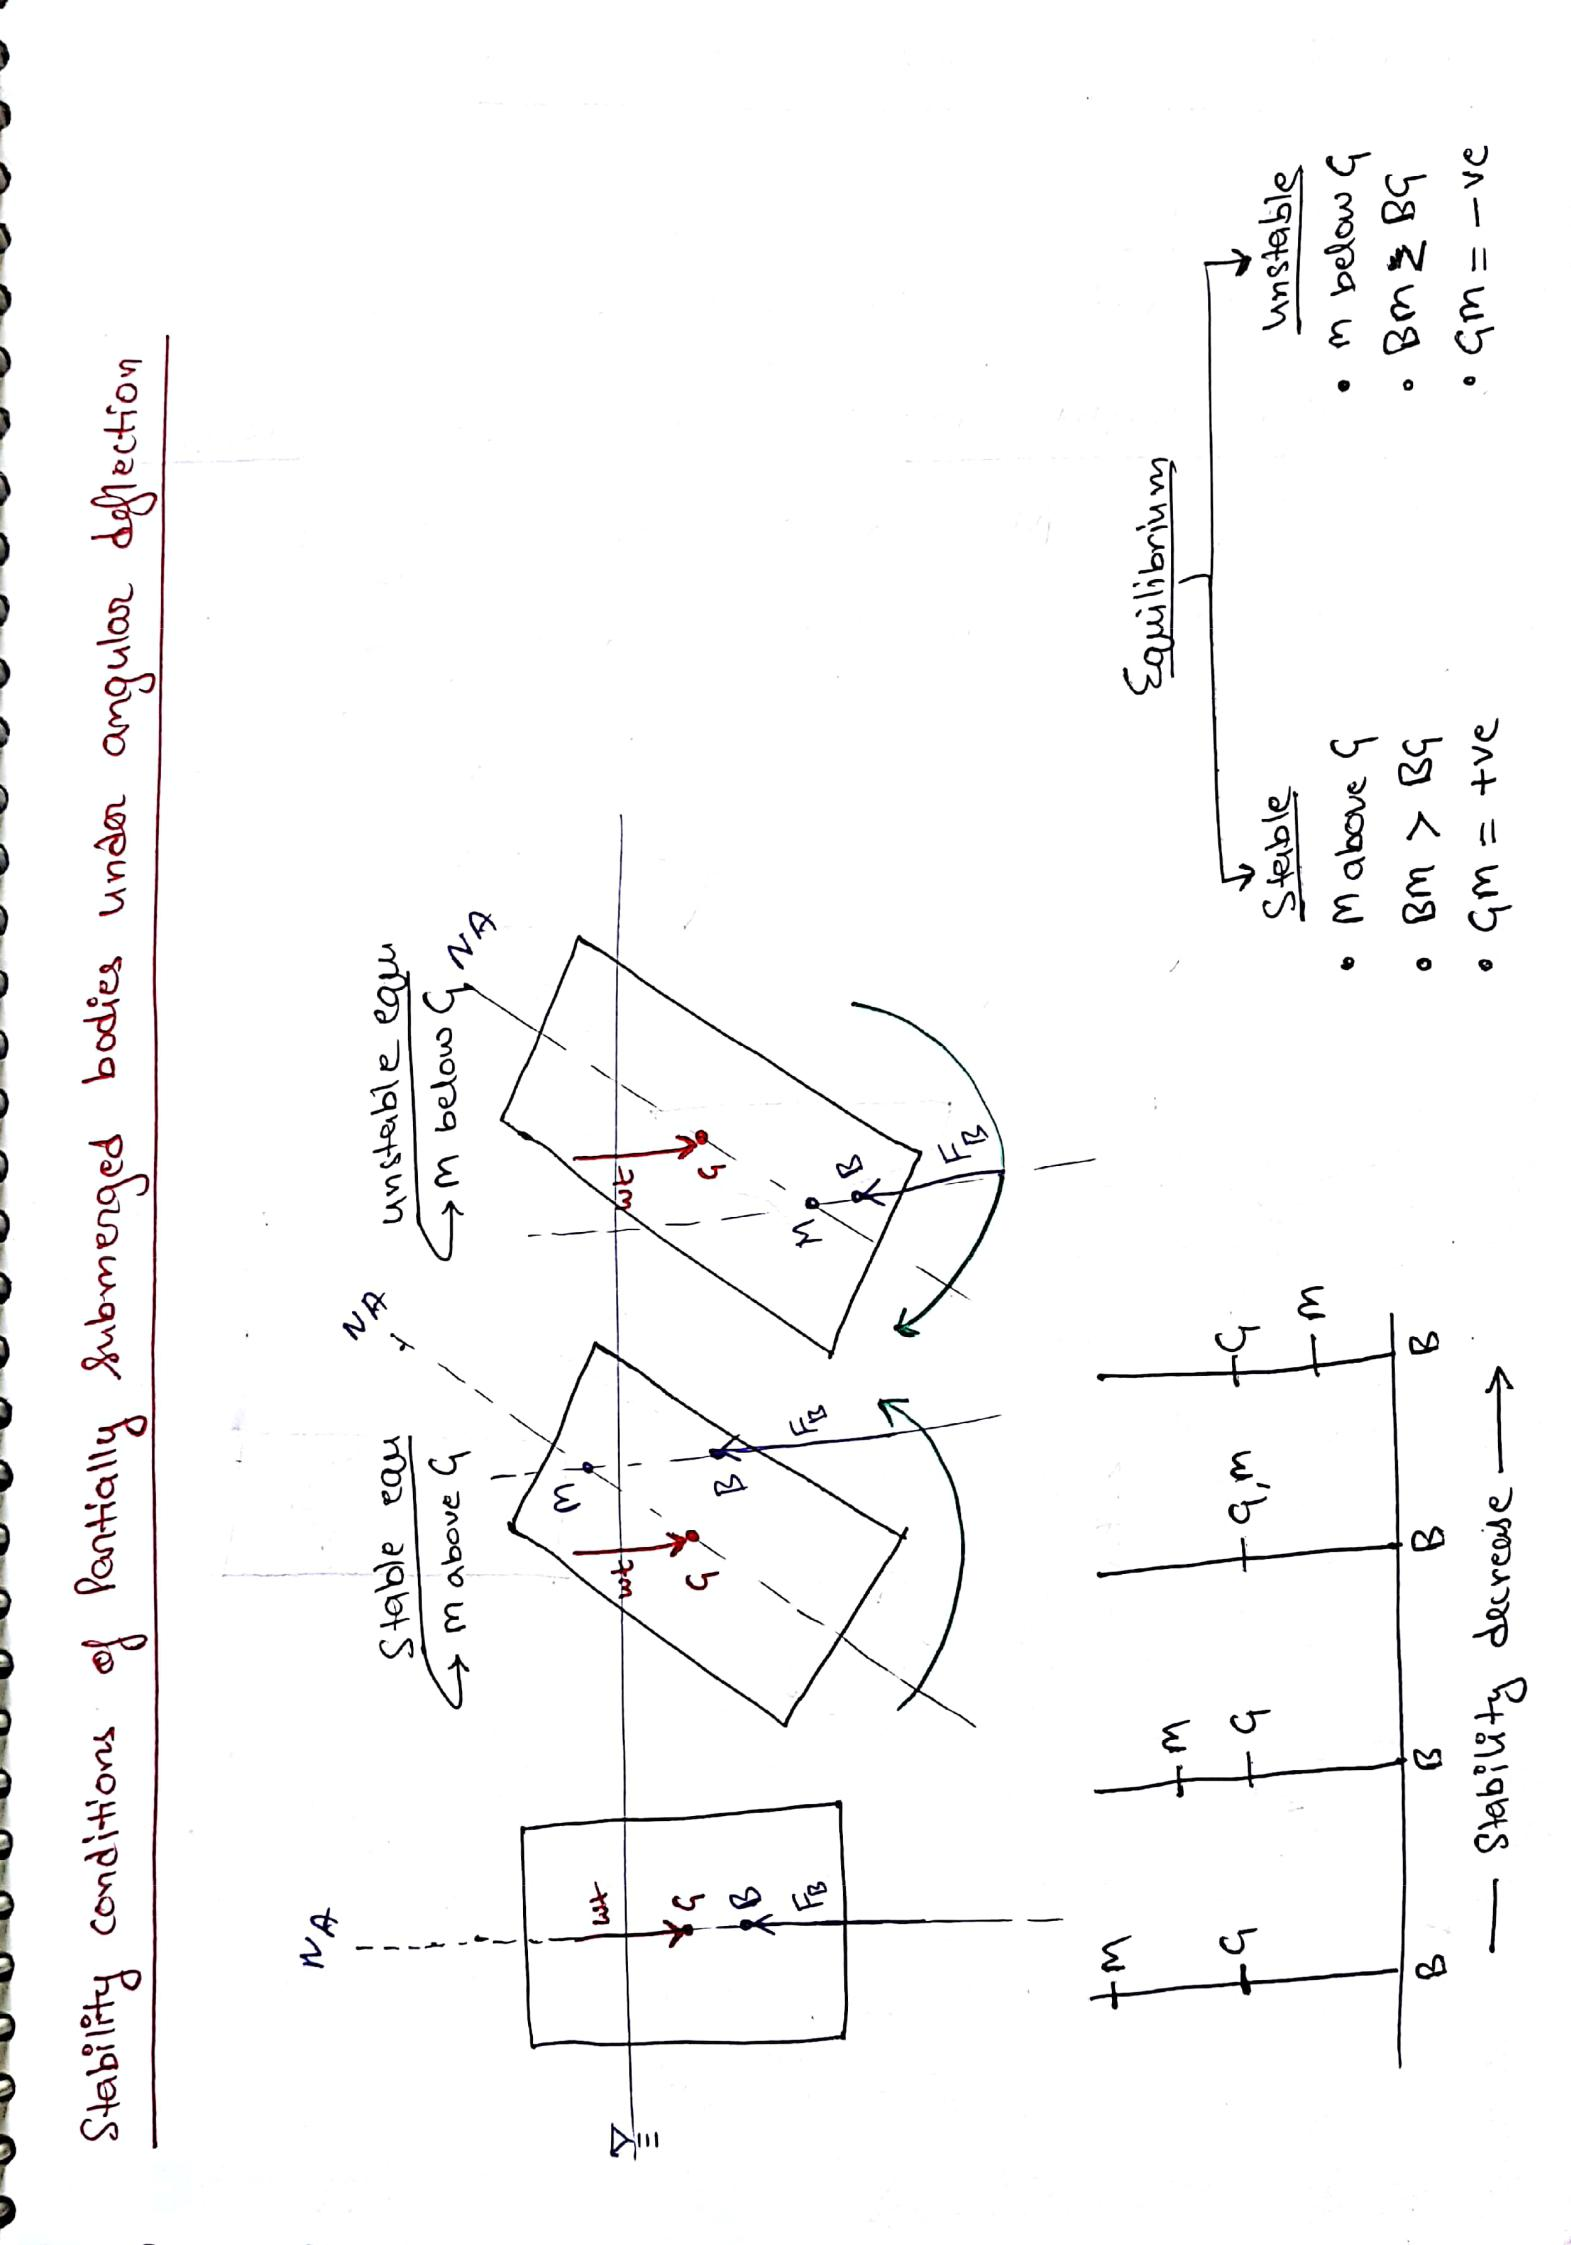 Stability conditions of Partially Submerged bodies under angular deflection
NA
wt
G
B
FB
Stable equ
→ m above G
NA
M
wt
G
B
FB
unstable equ
→ m below G
NA
wt
G
M
B
FB
M
G
B
M
G
B
G, M
B
G
M
B
— Stability decrease →
Equilibrium
Stable
• M above G
• BM > BG
• GM = +ve
unstable
• M below G
• BM BG
• GM = -ve